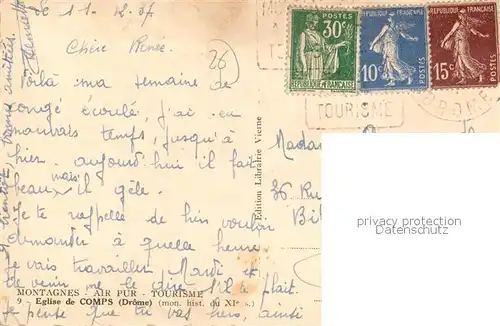 le 11. 12. 37
Chère Renée.
26
Voilà ma semaine de
congé écoulé, j'ai eu
mauvais temps, jusqu'à
hier. aujourd'hui il fait
beau, mais il gèle.
Je te rappelle de bien vouloir
demander à quelle heure
je vais travailler Mardi et
de venir me le dire s'il te plait.
je pense que tu vas bien, ainsi
MONTAGNES - AIR PUR - TOURISME
9 - Eglise de COMPS (Drôme) (mon. hist. du XIe s.)
Edition Librairie Vierne
POSTES
30c
REPUBLIQUE FRANÇAISE
REPUBLIQUE FRANÇAISE
10c
POSTES
REPUBLIQUE FRANÇAISE
15c
POSTES
TOURISME
DROME
Madam
36 Rue
privacy protection
Datenschutz